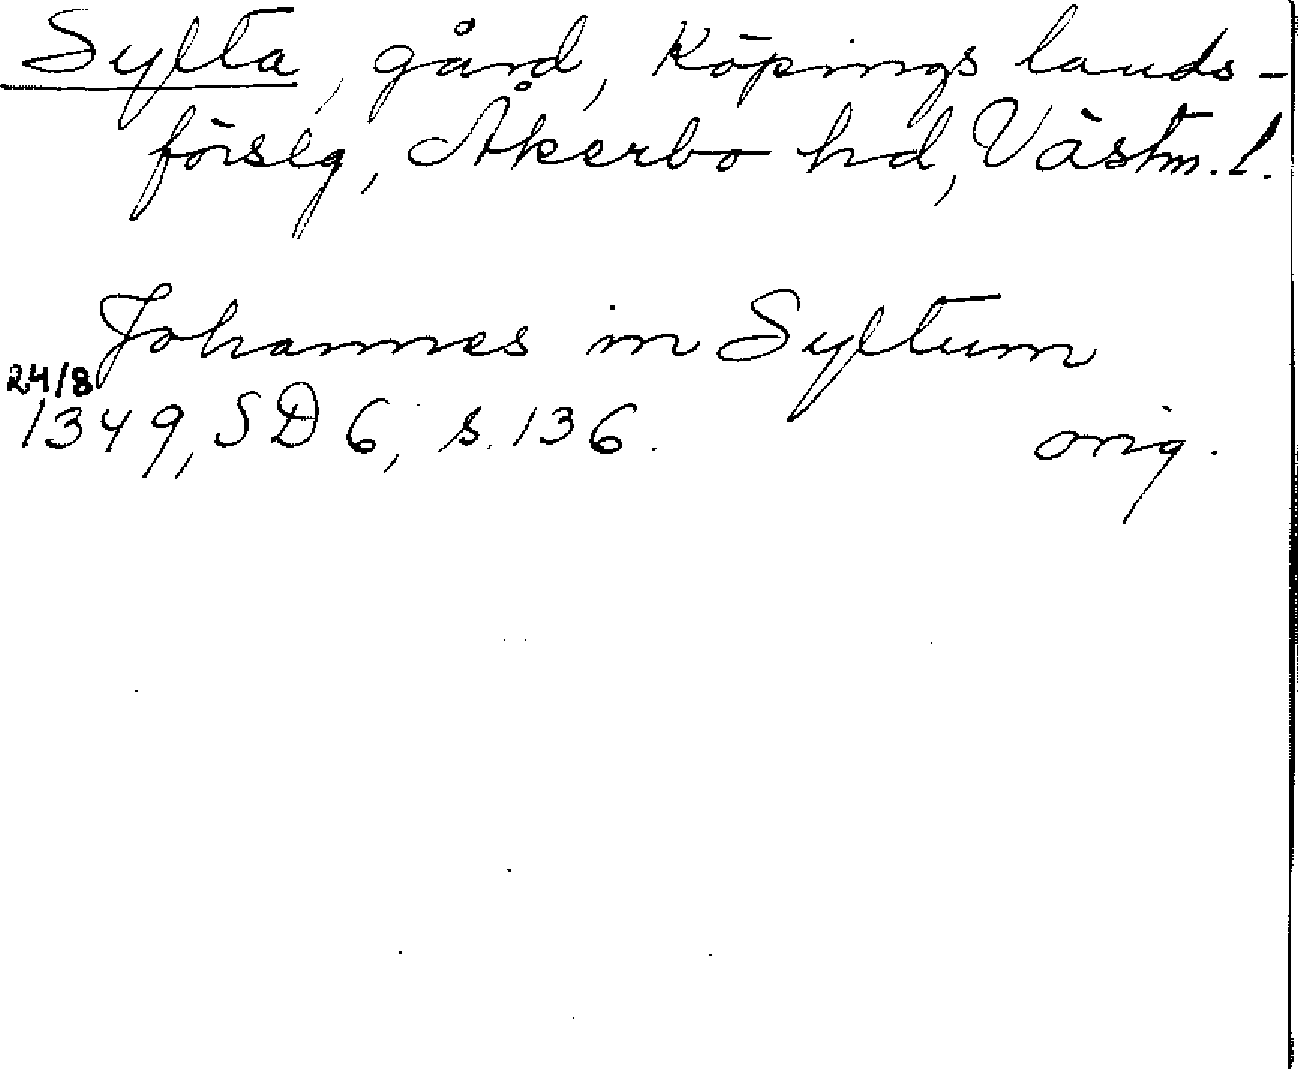 Sylta, gård, Köpings lands-
förslg, Åkerbo hd, Västm. l.
Johannes in Syltum
24/8
1349, SD 6, s. 136. orig.